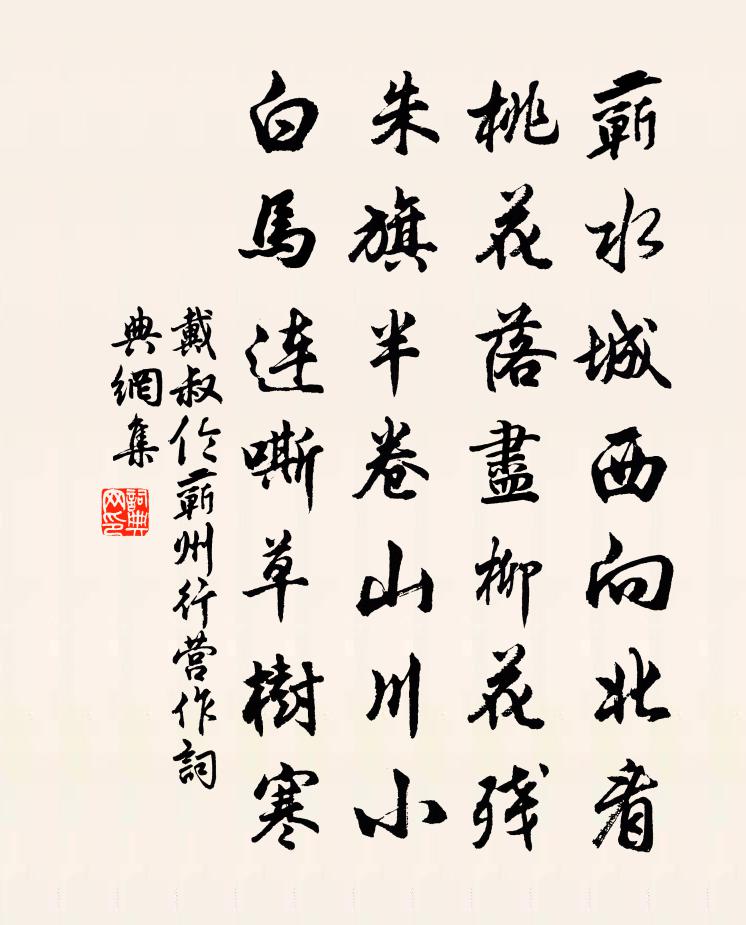 蘄水城西向北看
桃花落盡柳花殘
朱旗半卷山川小
白馬連嘶草樹寒
戴叔伦蘄州行营作詞
典網集
詞典网印